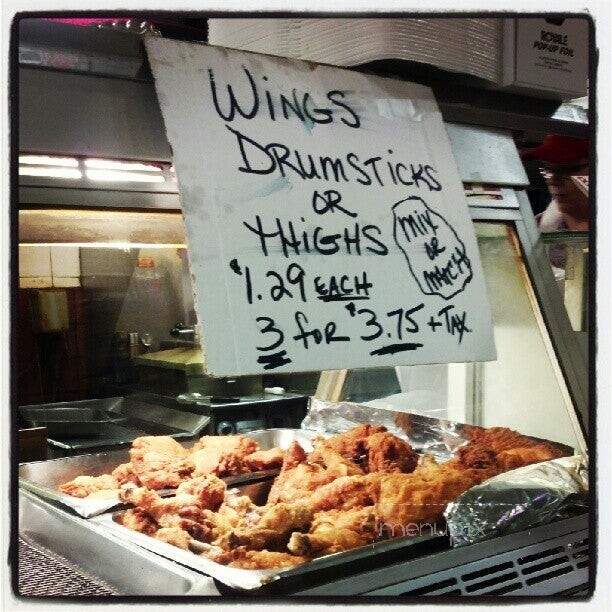 ROYALE
POP-UP FOIL
WINGS
DRUMSTICKS
OR
THIGHS
MIX
OR
MATCH
$1.29 EACH
3 FOR $3.75 + TAX
menu